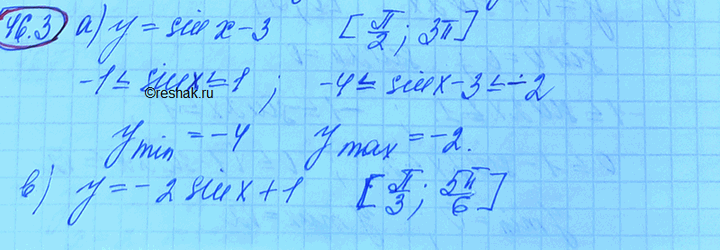 46.3 а) y = sin x - 3 [π/2; 3π]
-1 ≤ sin x ≤ 1 ; -4 ≤ sin x - 3 ≤ -2
©reshak.ru
y min = -4 y max = -2.
в) y = -2 sin x + 1 [π/3; 5π/6]